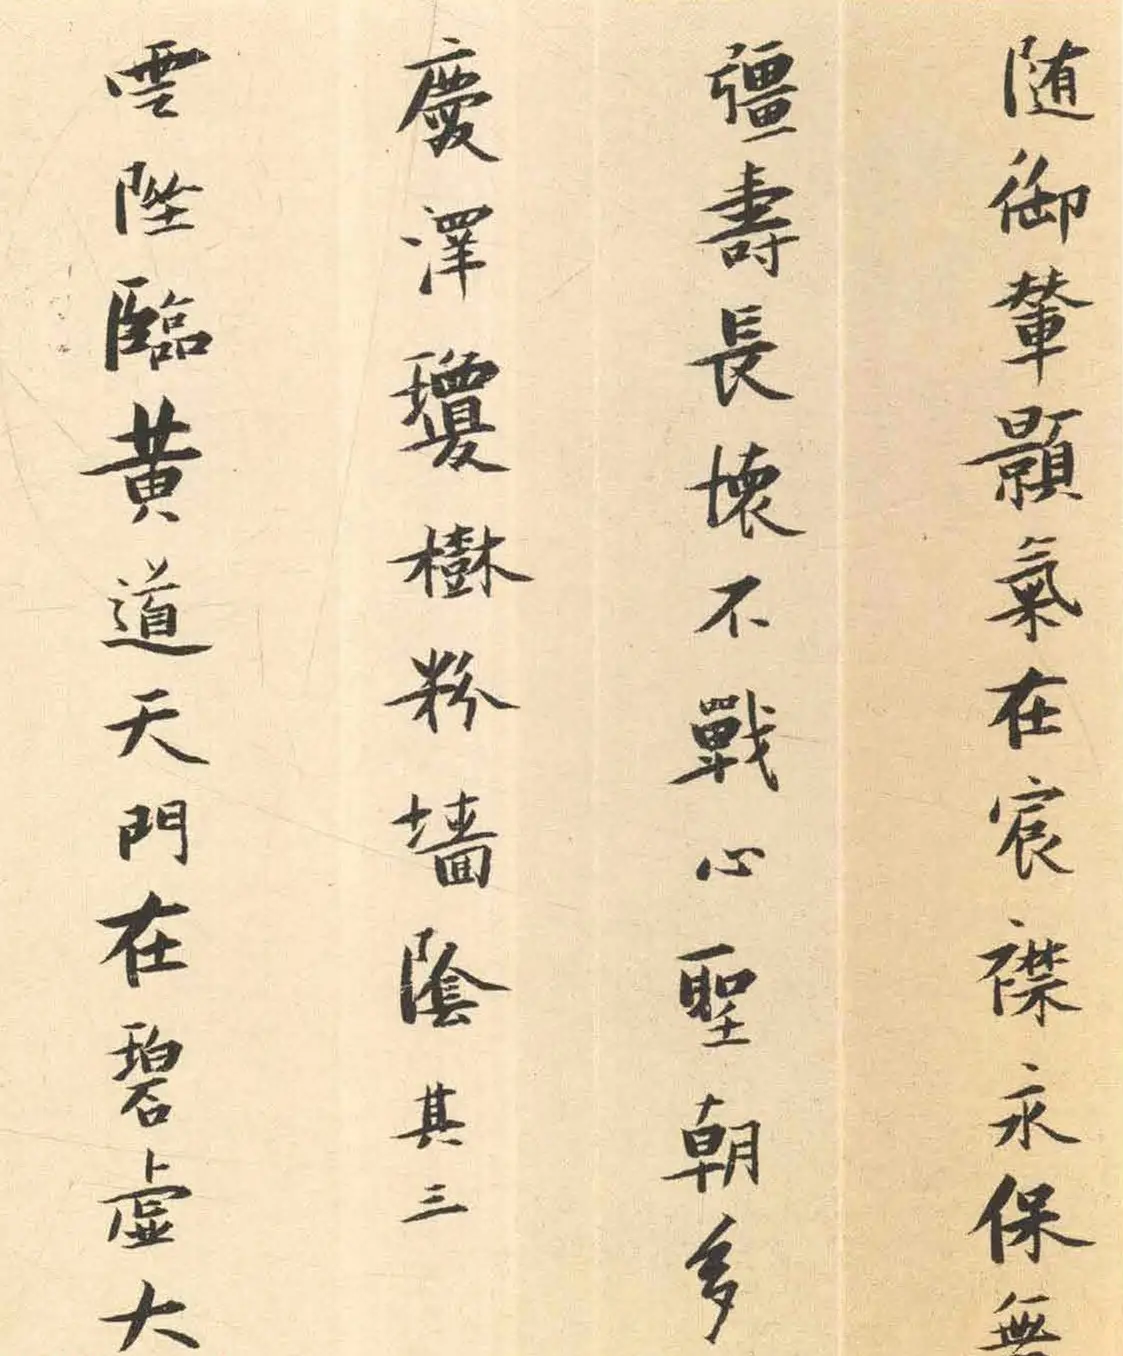 随御輦顥氣在宸襟永保無
彊壽長懷不戰心聖朝多
慶澤瓊樹粉墻陰其三
雲陛臨黄道天門在碧虚大